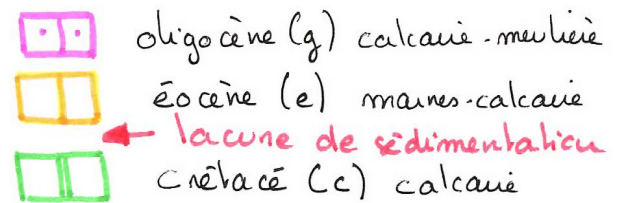 oligocène (g) calcaire-meulière
éocène (e) marnes-calcaire
lacune de sédimentation
crétacé (c) calcaire